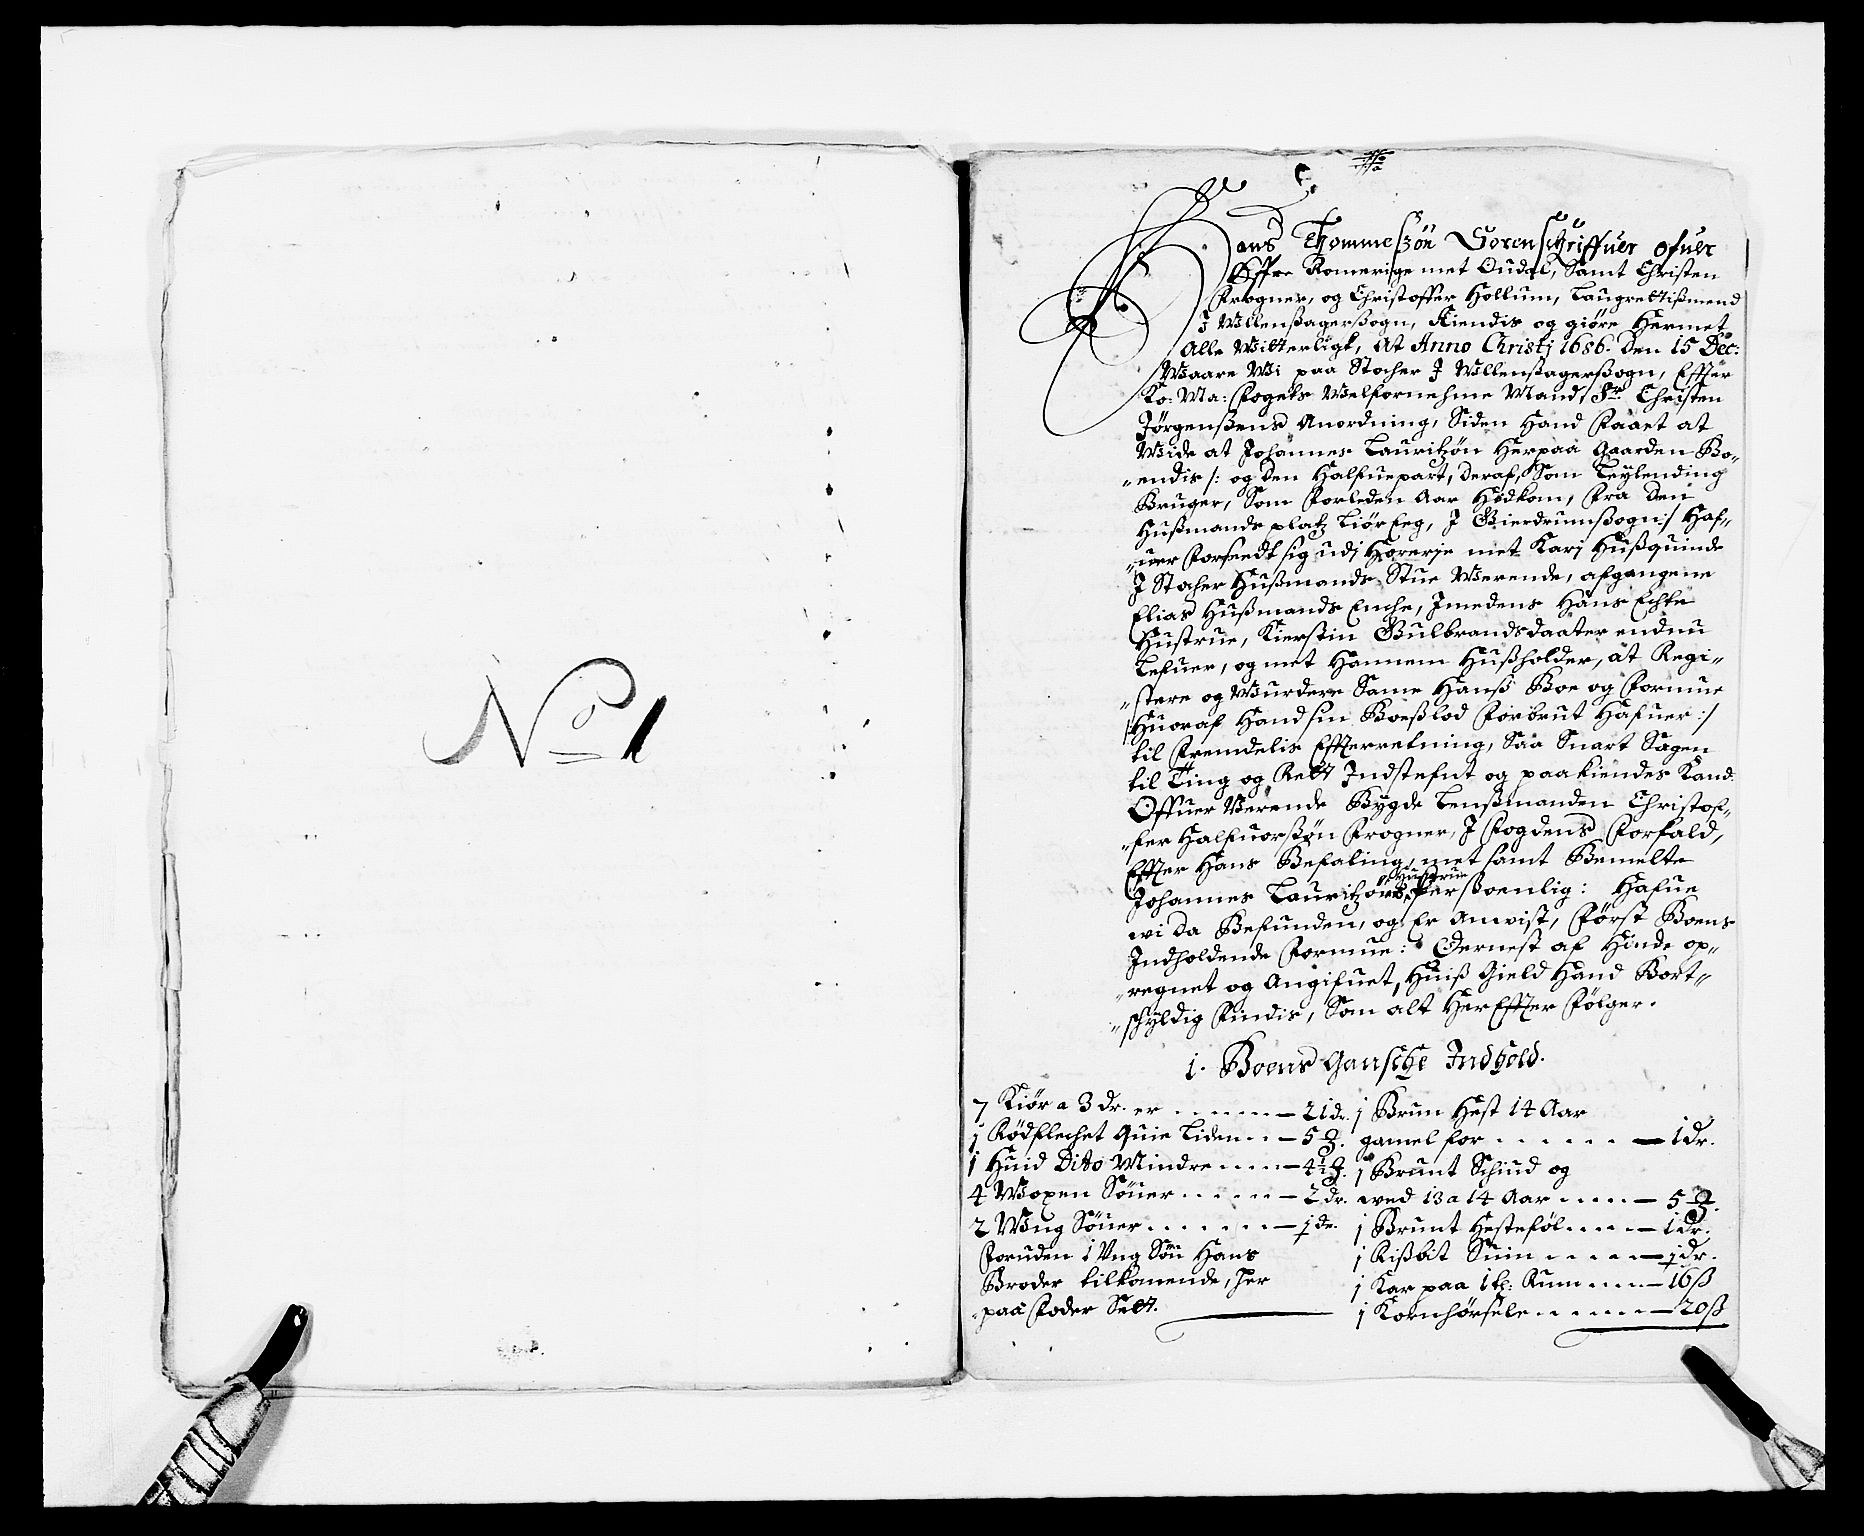 No 1
Hans Thommeszøn Sorenschriffuer ofuer
Øffre Romerige met Oudal, Samt Christen
Frogner, og Christoffer Hollum, Laugrettißmend
J Ullensagersogn, Kiendis og giøre Hermet
Alle Witterligt, At Anno Christi 1686. Den 15 Dec:
Waare Wi paa Stocher J Ullensagersogn, Effter
Ko: Ma: Fogets Welfornehme Mand Sr. Christen
Jørgenßens Anordning, Siden Hand Faaet at
Wide at Johannes Lauritzøn Herpaa Gaarden Bo-
endis /: og den Halfuepart, deraf, Som Leylending
Bruger, Som Forleden Aar Hidkom, Fra den
Hußmands platz Liør Eeg, J Gierdrumsogn :/ Haf-
uer Forseedt sig udj Horerie met Karj Hußquinde
J Stocher Hußmands Stue Werende, afgangene
Elias Hußmands Enche, Jmedens Hans Echte
Hustrue, Kierstin Gulbrandsdaater endnu
Lefuer, og met Hannem Hußholder, at Regi-
stere og Wurdere Same Hanß Boe og Formue
/: Huoraf Hand sin Boeßlod Forbrut Hafuer :/
til Fremdelis Effterretning, Saa Snart Sagen
til Ting og Rett Jndstefnt og paakiendes Kand.
Offuer Werende Bygde Lensmanden Christof-
fer Halfuorßøn Frogner, J Fogdens Forfald,
Effter Hans Befaling, met samt Bemelte
Johannes Lauritzøns Hustrue Perßoenlig: Hafue
wi da Befunden, og Er Anvist, Først Boens
Jndholdende Formue: Dernest af Hinde op-
regnet og Angifuet, Huiß Gield Hand Bort-
schyldig Findis, Som alt HerEffter Følger.
1. Boens Gansche Jndhold.
7 Kiør a 3 dr. er - 21 dr.
1 Rødflechet Quie Liden - 5
1 Huid Dito Mindre - 4½
4 Woxen Søuer - 2 dr.
2 Wng Søuer - 1 dr.
Foruden 1 Vng Søu Hans
Broder tilkomende, her
paa Foder Sett.
1 Brun Hest 14 Aar
gamel for - 1 dr.
1 Brunt Schiud og
wed 13 a 14 Aar - 5
1 Brunt Hesteføl - 1 dr.
1 Rißbit Suin - 1 dr.
1 Kar paa 1 tl: Rum - 16 ß
1 Kornhørsele - 20 ß